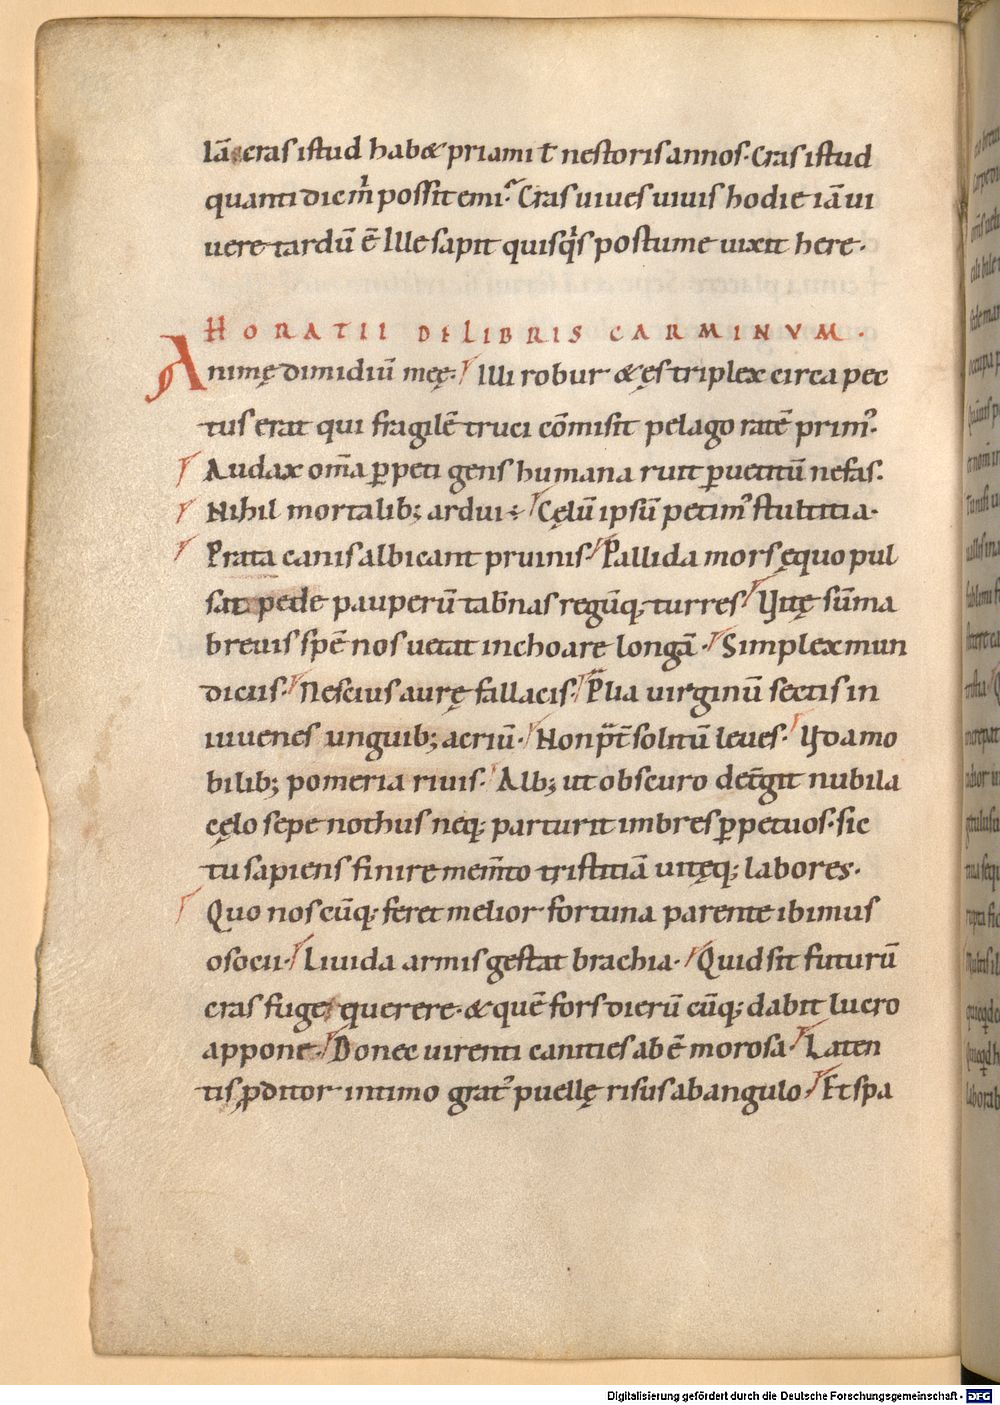 Iā cras istud hab& priami ƚ nestoris annos· Cras istud
quanti dic m̊ possit emi? Cras uiues uiuis hodie iā ui
uere tardū ē Ille sapit quisq̇s postume uixit here·
HORATII DE LIBRIS CARMINVM·
Animę dimidiū meę· Illi robur & ęs triplex circa pec
tus erat qui fragilē truci cōmisit pelago ratē primꝰ·
Audax om̄a ꝑpeti gens humana ruit ꝑ uetitū nefas·
Nihil mortalib; ardui ÷ Cęlū ipsū petimꝰ stultitia·
Prata canis albicant pruinis· Pallida mors ęquo pul
sat pede pauperū tab̄nas regūq; turres· Vitę sūma
breuis spē nos uetat inchoare longā· Simplex mun
diciis· Nescius aurę fallacis· Plia uirginū sectis in
iuuenes unguib; acriū· Non p̄t̄ solitū leues· Vdamo
bilib; pomeria riuis· Alb; ut obscuro det̄git nubila
cęlo sepe nothus neq; parturit imbres ꝑpetuos· sic
tu sapiens finire mem̄to tristitiā uitęq; labores·
Quo nos cūq; feret melior fortuna parente ibimus
o socii· Liuida armis gestat brachia· Quid sit futurū
cras fuge querere· & quē fors dierū cūq; dabit lucro
appone· Donec uirenti canities ab ē morosa· Laten
tis ꝓditor intimo gratꝰ puellę risus ab angulo· Et spa
Digitalisierung gefördert durch die Deutsche Forschungsgemeinschaft - DFG